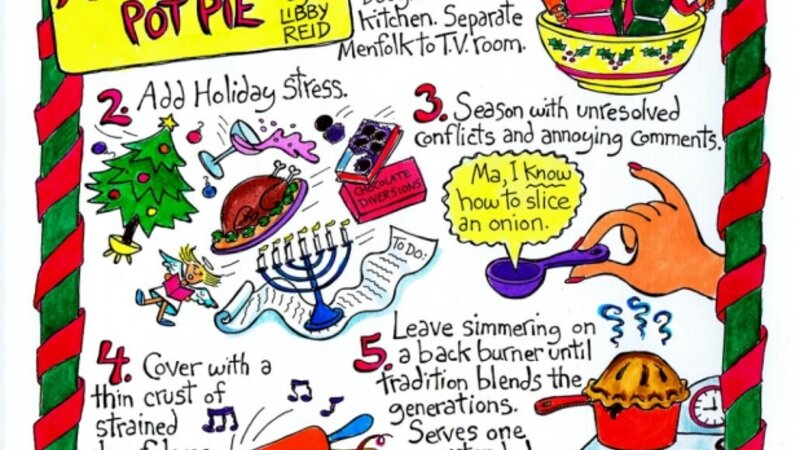 POT PIE
LIBBY
REID
kitchen. Separate
Menfolk to T.V. room.
2. Add Holiday Stress.
CHOCOLATE
DIVERSIONS
TO DO:
3. Season with unresolved
conflicts and annoying comments.
Ma, I Know
how to slice
an onion.
4. Cover with a
thin crust of
strained
5. Leave simmering on
a back burner until
tradition blends the
generations.
Serves one